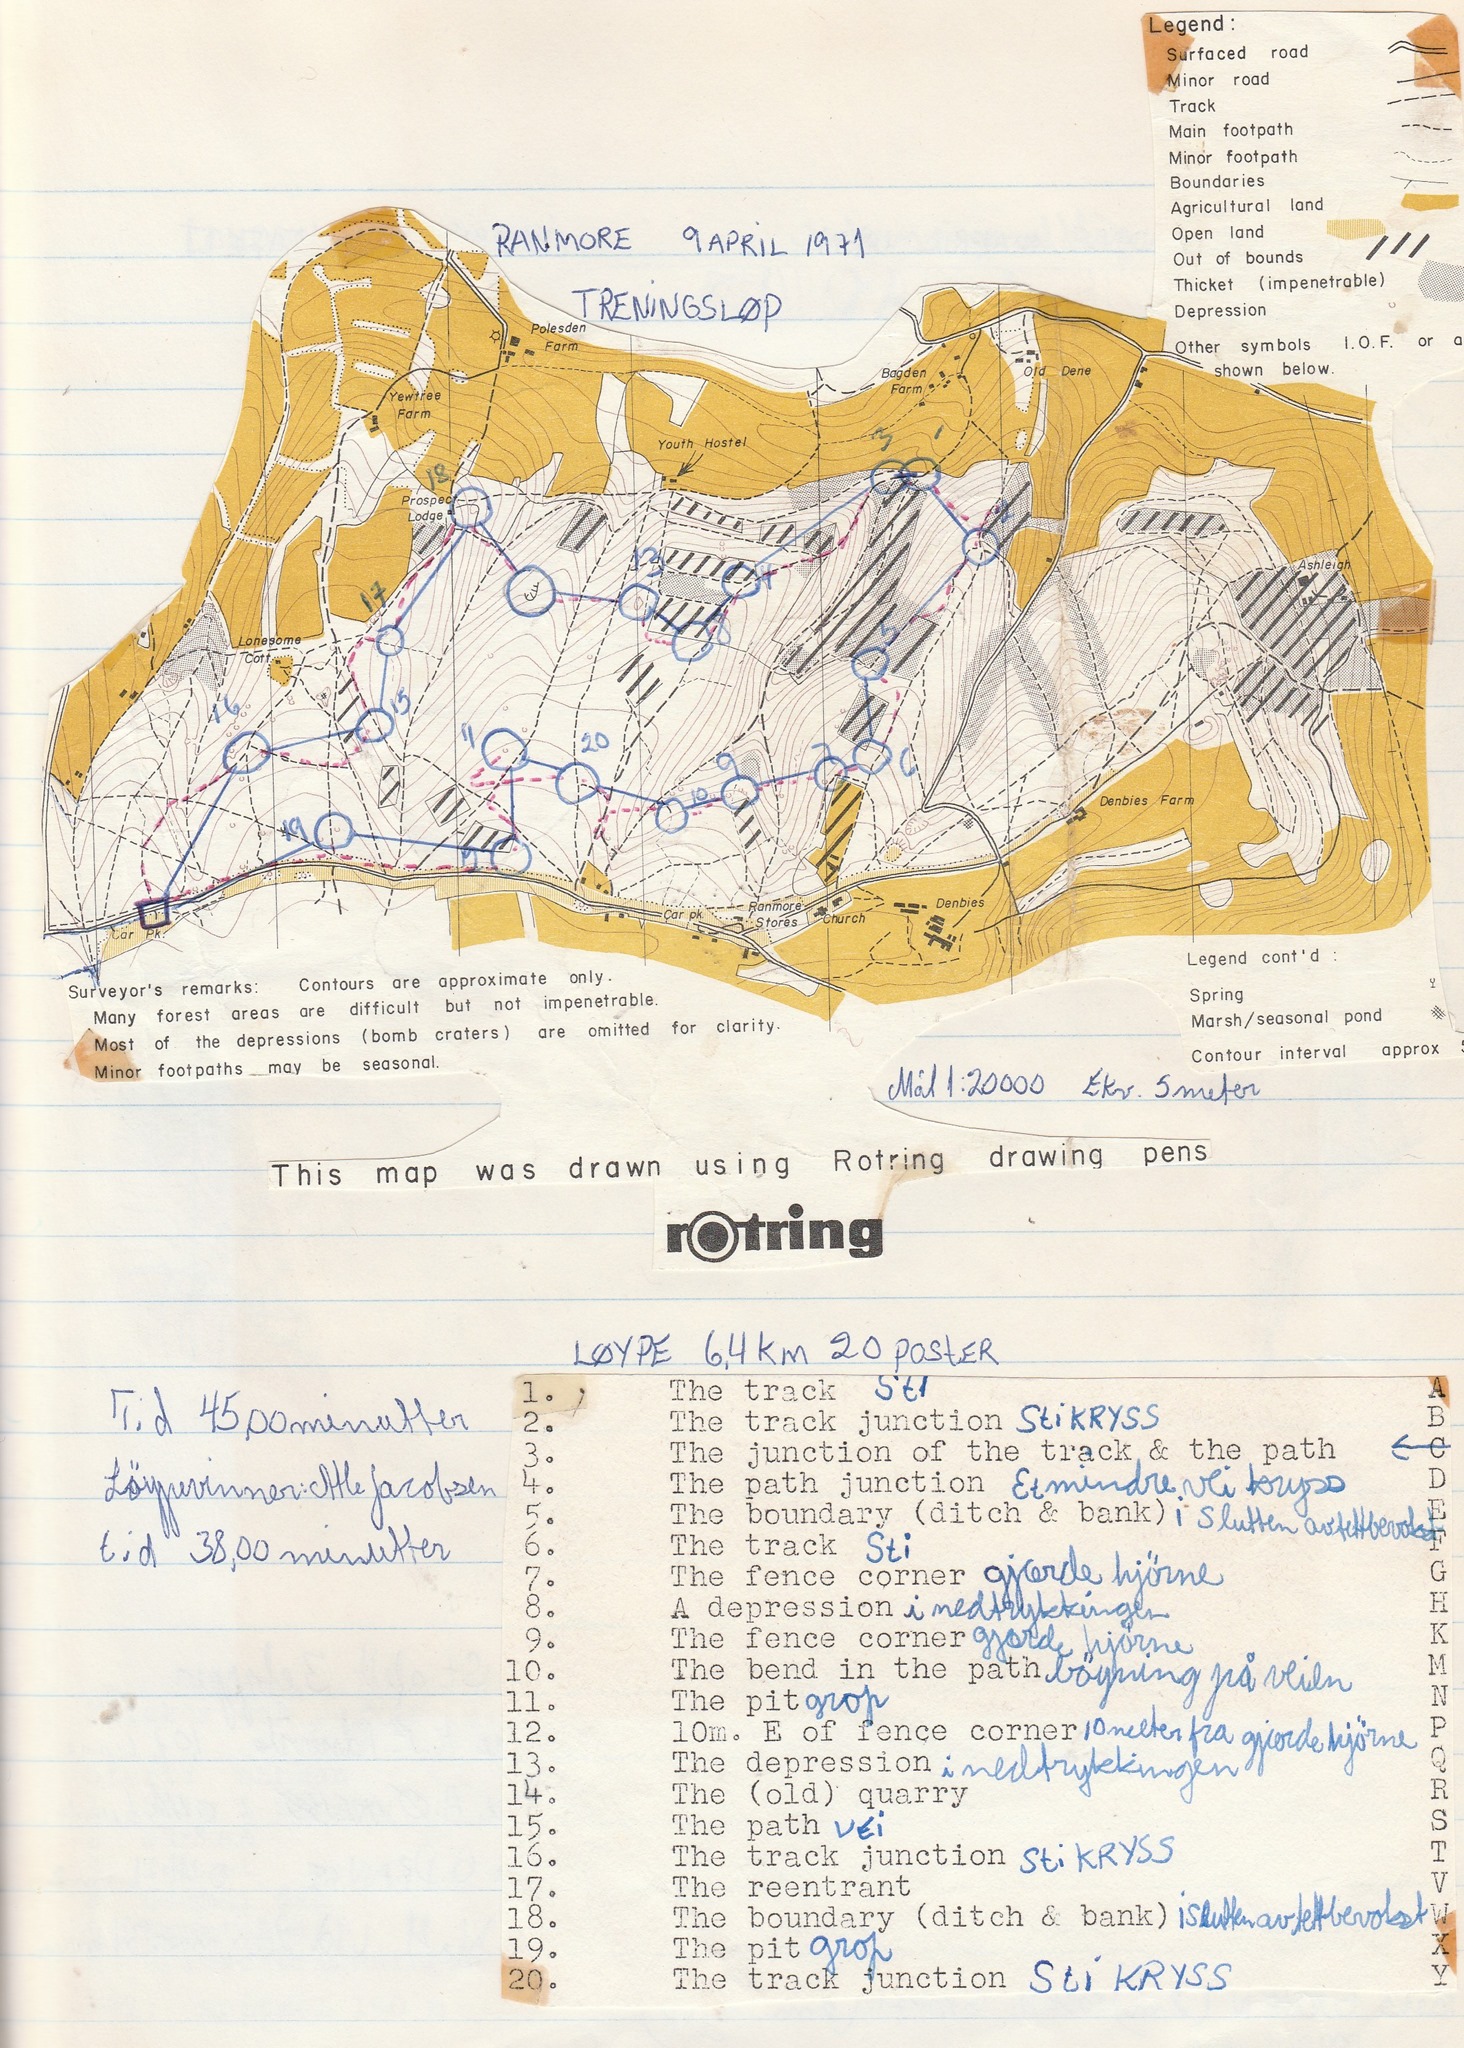 Legend:
Surfaced road
Minor road
Track
Main footpath
Minor footpath
Boundaries
Agricultural land
Open land
Out of bounds
Thicket (impenetrable)
Depression
Other symbols I.O.F. or a
shown below.
RANMORE 9 APRIL 1971
TRENINGSLØP
Polesden
Farm
Yewtree
Farm
Bagden
Farm
Old Dene
Youth Hostel
3 1
18
Prospect
Lodge
2
13
4
Ashleigh
17
Lonesome
Cott.
5
15
16
11
20
9
7
6
10
Denbies Farm
19
Car Pk.
Car pk
Ranmore
Stores
Church
Denbies
Surveyor's remarks: Contours are approximate only.
Many forest areas are difficult but not impenetrable.
Most of the depressions (bomb craters) are omitted for clarity.
Minor footpaths may be seasonal.
Legend cont'd :
Spring
Marsh/seasonal pond
Contour interval approx 5
Mål 1:20000 Ekv. 5 meter
This map was drawn using Rotring drawing pens
rotring
LØYPE 6,4 km 20 POSTER
Tid 45,00 minutter
Löypevinner: Atle Jacobsen
tid 38,00 minutter
1. The track Sti A
2. The track junction Sti KRYSS B
3. The junction of the track & the path C
4. The path junction Et mindre vei kryss D
5. The boundary (ditch & bank) i Slutten av tettbevokst E
6. The track Sti F
7. The fence corner gjærde hjörne G
8. A depression i nedtrykkingen H
9. The fence corner gjærde hjörne K
10. The bend in the path böyning på veien M
11. The pit grop N
12. 10m. E of fence corner 10 meter fra gjærde hjörne P
13. The depression i nedtrykkingen Q
14. The (old) quarry R
15. The path VEi S
16. The track junction Sti KRYSS T
17. The reentrant V
18. The boundary (ditch & bank) i slutten av tettbevokst W
19. The pit grop X
20. The track junction Sti KRYSS Y